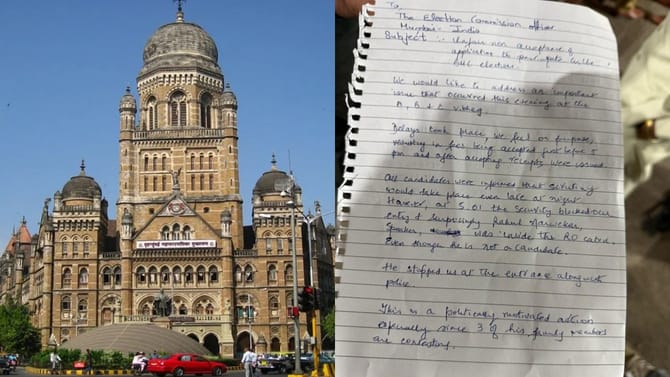 To,
The Election Commission officer
Mumbai - India
Subject :- Unfair non acceptance of
application to participate in the
BMC elections.
We would like to address an important
issue that occurred this evening at the
A, B & C vibhag.
Delays took place, we feel on purpose,
resulting in fees being accepted just before 5
pm and after accepting receipts were issued.
All candidates were informed that scrutiny
would take place even late at night.
However, at 5.01 the security blocked our
entry & surprisingly Rahul Narwekar,
Speaker, was inside the RO cabin.
Even though he is not a candidate.
He stopped us at the entrance along with
police.
This is a politically motivated action
especially since 3 of his family members
are contesting.